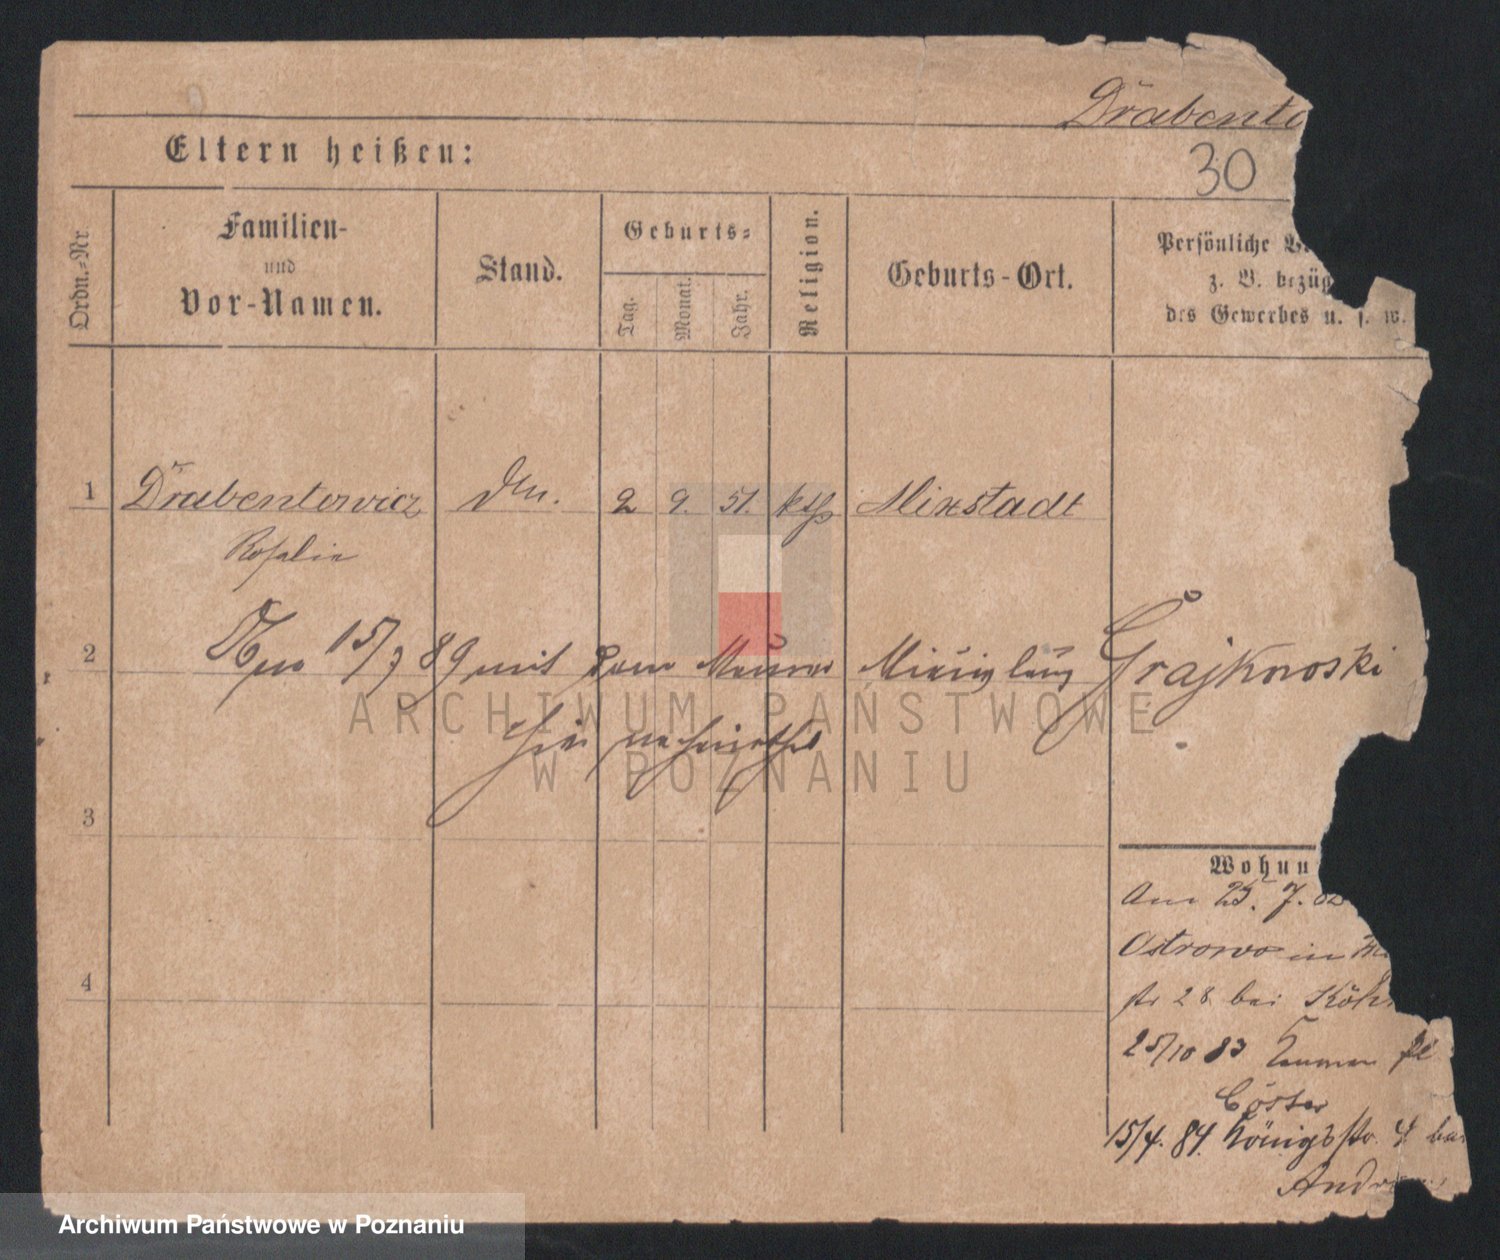 Drabento
Eltern heißen:
30
Ordn.-Nr.
Familien-
und
Vor-Namen.
Stand.
Geburts-
Tag.
Monat.
Jahr.
Religion.
Geburts-Ort.
Persönliche
z. B. bezüg
des Gewerbes u. s. w.
1 Drabentowicz 2 9. 51. kth Mixstadt
Rosalie
2 15/ 89 mit dem Maurer Grajknoski
hier verheirathet
3
4
Wohnun
Am 25. 7. 82
Ostrowo in
str 28 bei Köh
25/10 83
Cöster
15/4. 84. Königsstr. 4 bei
Andr
ARCHIWUM PAŃSTWOWE
W POZNANIU
Archiwum Państwowe w Poznaniu